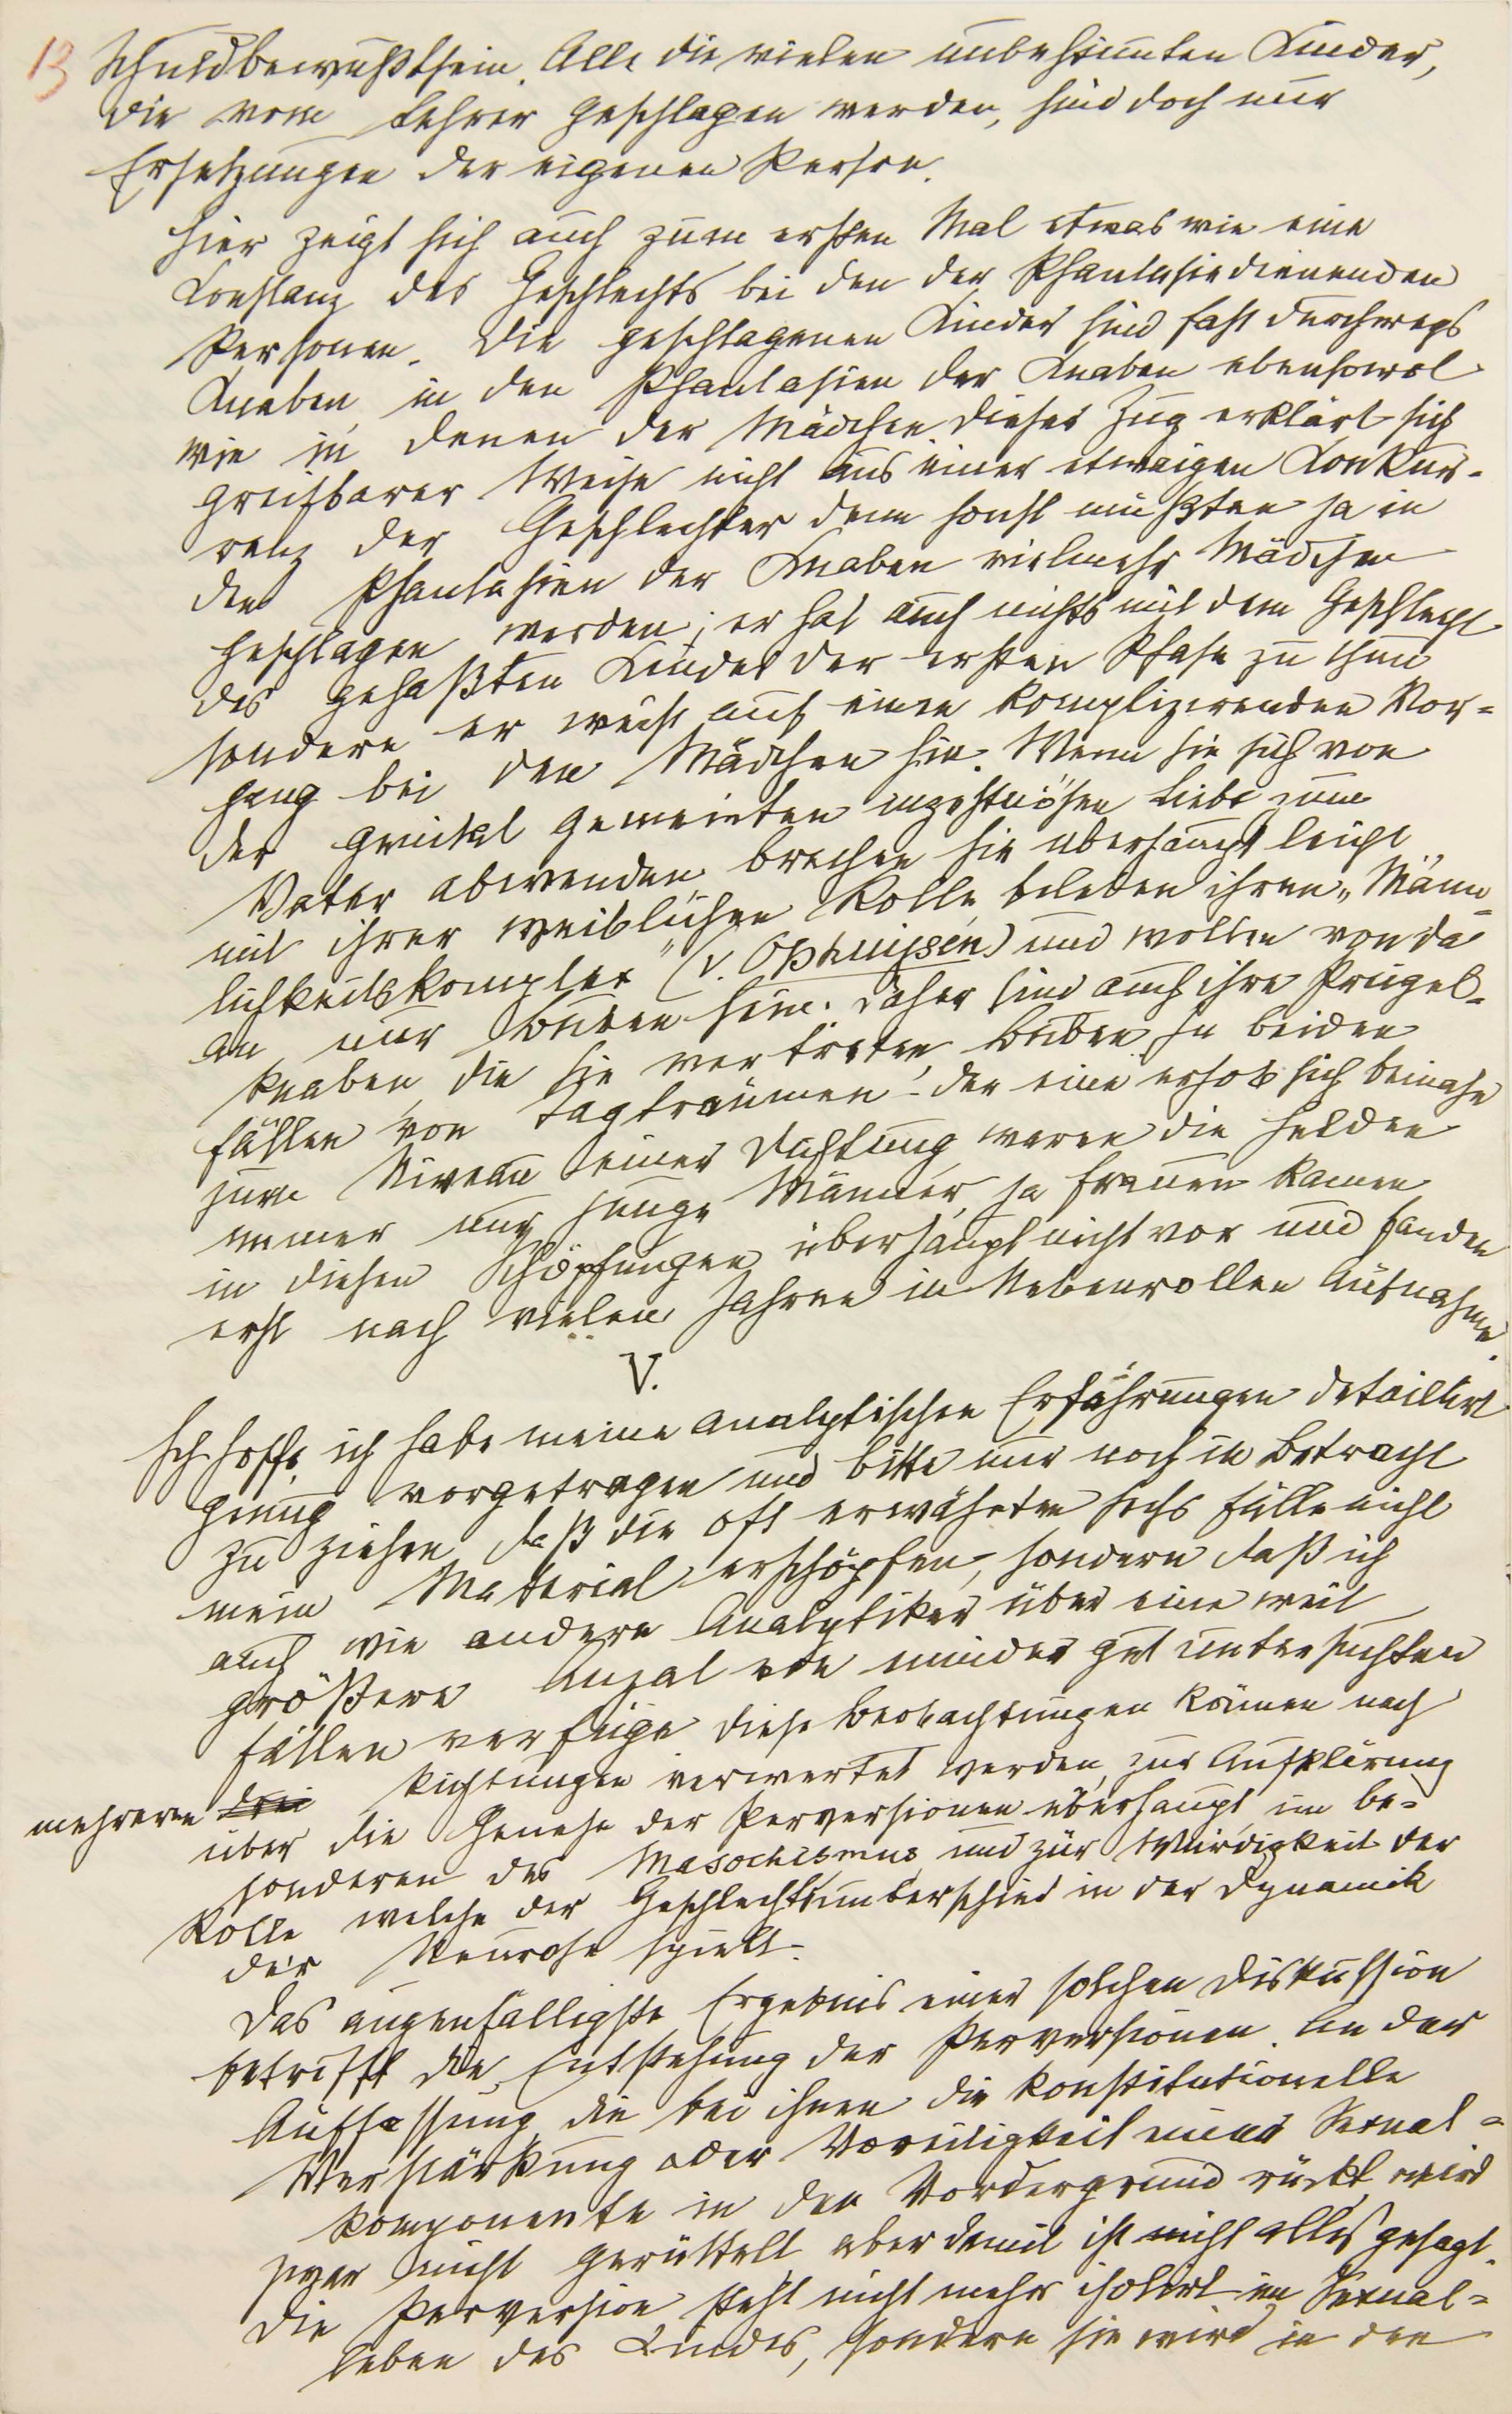 13
Schuldbewußtsein. Alle die vielen unbestimmten Kinder,
die vom Lehrer geschlagen werden, sind doch nur
Ersetzungen der eigenen Person.
Hier zeigt sich auch zum ersten Mal etwas wie eine
Constanz des Geschlechts bei den der Phantasie dienenden
Personen. Die geschlagenen Kinder sind fast durchwegs
Knaben, in den Phantasien der Knaben ebensowol
wie in denen der Mädchen. Dieser Zug erklärt sich
greifbarer Weise nicht aus einer etwaigen Konkur-
renz der Geschlechter denn sonst müßten ja in
den Phantasien der Knaben vielmehr Mädchen
geschlagen werden; er hat auch nichts mit dem Geschlecht
des gehaßten Kindes der ersten Phase zu thun
sondern er weist auf einen komplizirenden Vor-
gang bei den Mädchen hin. Wenn sie sich von
der genital gemeinten inzestuösen Liebe zum
Vater abwenden, brechen sie überhaupt leicht
mit ihrer weiblichen Rolle, beleben ihren „Männ-
lichkeitskomplex" (v. Ophuijsen) und wollen von da
an nur Buben sein. Daher sind auch ihre Prügel-
knaben, die sie vertreten, Buben. In beiden
Fällen von Tagträumen – der eine erhob sich beinahe
zum Niveau einer Dichtung waren die Helden
immer nur junge Männer, ja Frauen kamen
in diesen Schöpfungen überhaupt nicht vor und fanden
erst nach vielen Jahren in Nebenrollen Aufnahme.
V.
Ich hoffe, ich habe meine analytischen Erfahrungen detaillirt
genug vorgetragen und bitte nur noch in Betracht
zu ziehen, daß die oft erwähnten sechs Fälle nicht
mein Material erschöpfen, sondern daß ich
auch wie andere Analytiker über eine weit
größere Anzal von minder gut untersuchten
Fällen verfüge. Diese Beobachtungen können nach
mehreren drei Richtungen verwertet werden, zur Aufklärung
über die Genese der Perversionen überhaupt, im be-
sonderen des Masochismus, und zur Würdigkeit der
Rolle welche der Geschlechtsunterschied in der Dynamik
der Neurose spielt.
Das augenfälligste Ergebnis einer solchen Diskussion
betrifft die Entstehung der Perversionen. An der
Auffassung, die bei ihnen die konstitutionelle
Verstärkung oder Voreiligkeit einer Sexual-
komponente in den Vordergrund rückt, wird
zwar nicht gerüttelt aber damit ist nicht alles gesagt.
Die Perversion steht nicht mehr isolirt im Sexual-
leben des Kindes, sondern sie wird in den